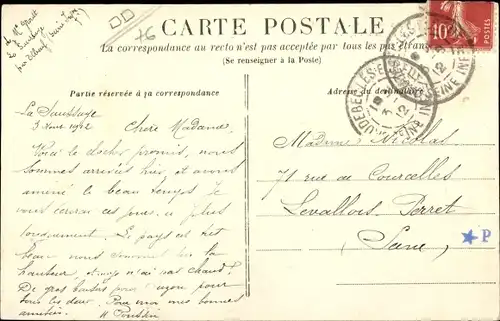 DD
76
CARTE POSTALE
La correspondance au recto n'est pas acceptée par tous les pays étrangers
(Se renseigner à la Poste)
Partie réservée à la correspondance
Adresse du destinataire
10c
POSTES
CAUDEBEC-LES-ELBEUF
SEINE INFRE
3
12
La Saussaye
3 Aout 1912
Chère Madame
Voici le clocher promis, nous
sommes arrivés hier, et avons
amené le beau temps. Je
vous écrirai ces jours-ci plus
longuement. Le pays est très
beau nous sommes sur la
hauteur, et n'ai pas chaud!
De gros baisers pour
tous les deux. Pour moi mes bonnes
amitiés.
Madame Nicolas
71 rue de Courcelles
Levallois-Perret
Seine
P